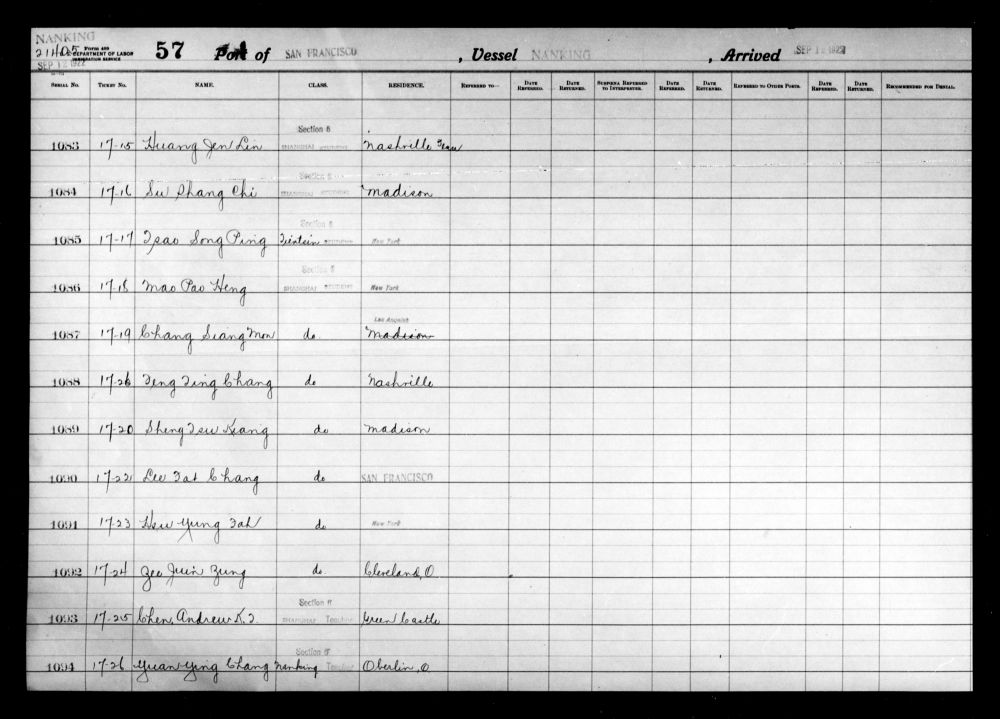 NANKING
21405 Form 499
DEPARTMENT OF LABOR
IMMIGRATION SERVICE
SEP 12 1922
57 Port of SAN FRANCISCO, Vessel NANKING, Arrived SEP 12 1922
SERIAL NO. TICKET NO. NAME. CLASS. RESIDENCE. REFERRED TO— DATE REFERRED. DATE RETURNED. SUBPENA REFERRED TO INTERPRETER. DATE REFERRED. DATE RETURNED. REFERRED TO OTHER PORTS. DATE REFERRED. DATE RETURNED. RECOMMENDED FOR DENIAL.
Section 6
1083 17-15 Huang Jen Lin SHANGHAI STUDENT Nashville Tenn
Section 6
1084 17-16 Su Shang Chi SHANGHAI STUDENT Madison
Section 6
1085 17-17 Tsao Song Ping Tientsin STUDENT New York
Section 6
1086 17-18 Mao Pao Heng SHANGHAI STUDENT New York
Los Angeles
1087 17-19 Chang Siang Mon do. Madison
1088 17-26 Teng Ting Chang do Nashville
1089 17-20 Sheng Tsu Kiang do Madison
1090 17-22 Lee Tat Chang do SAN FRANCISCO
1091 17-23 Hsu Yung Tah do New York
1092 17-24 Zee Juin Zung do. Cleveland, O
Section 6
1093 17-25 Chen, Andrew K.T. SHANGHAI Teacher Green Castle
Section 6
1094 17-26 Yuan Ying Chang Nanking Teacher Oberlin, O